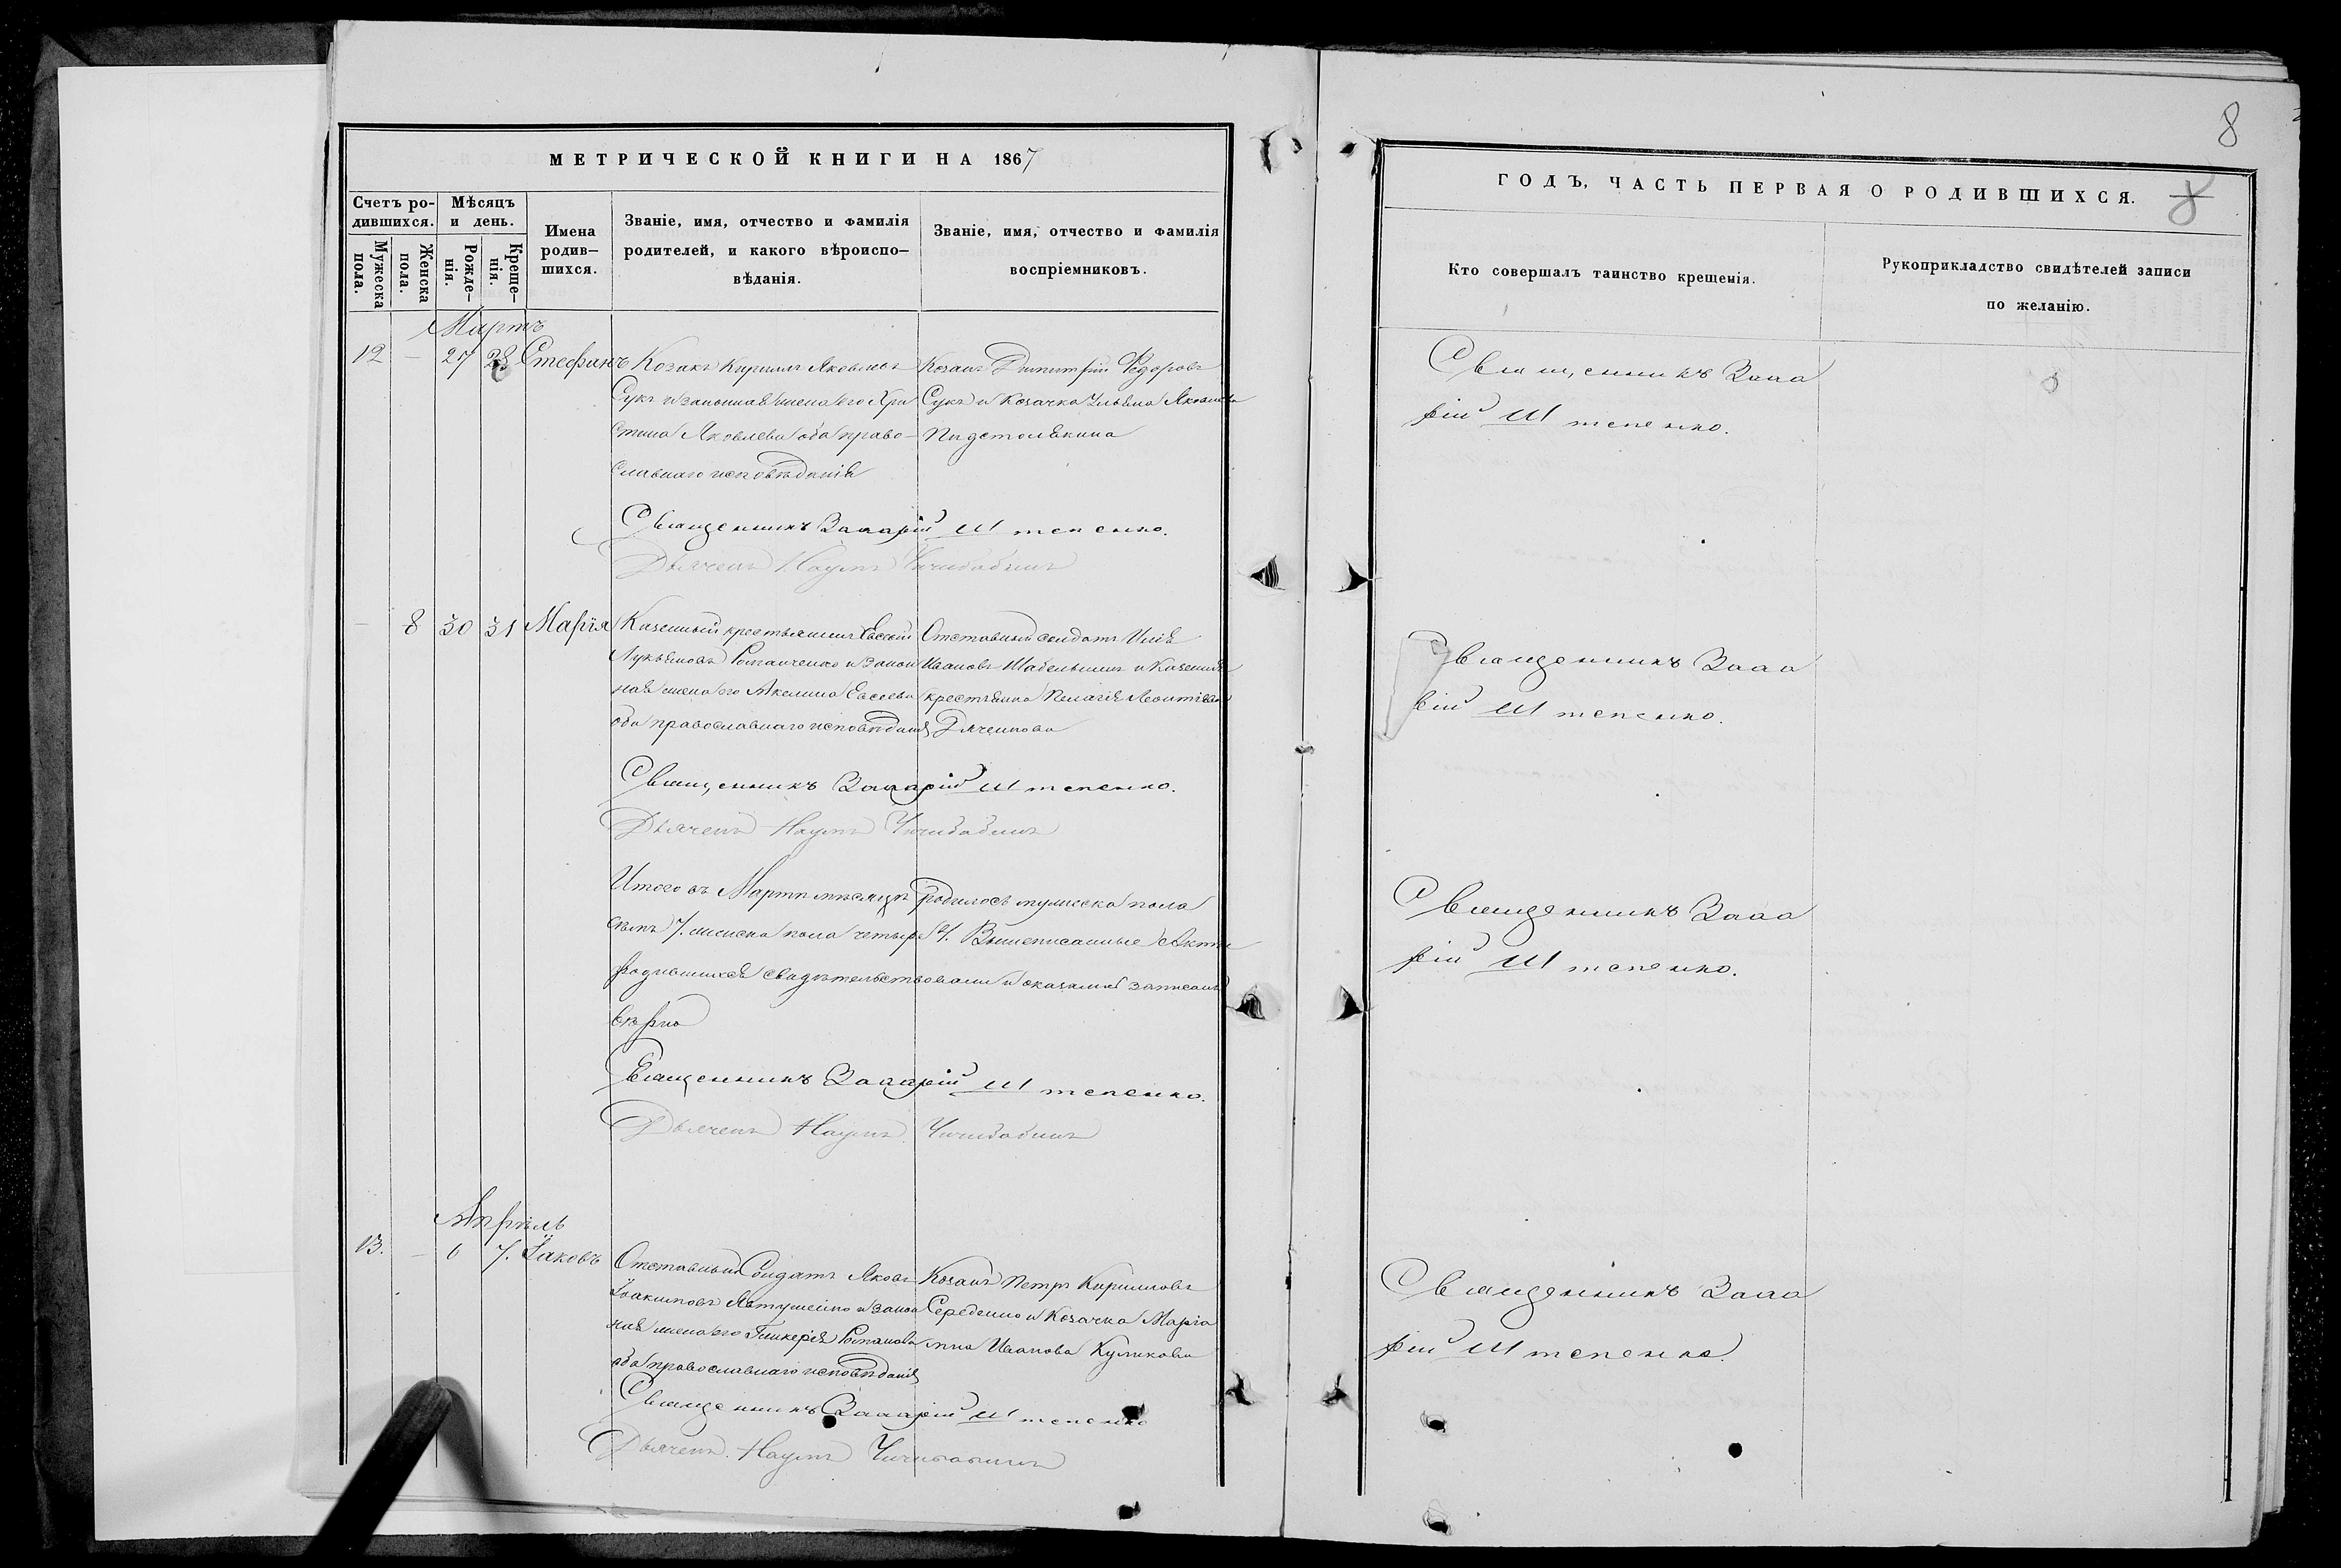 8
МЕТРИЧЕСКОЙ КНИГИ НА 1867
ГОДЪ, ЧАСТЬ ПЕРВАЯ О РОДИВШИХСЯ.
8
Счетъ родившихся.
Мужеска пола.
Женска пола.
Мѣсяцъ и день.
Рожденія.
Крещенія.
Имена родившихся.
Званіе, имя, отчество и фамилія родителей, и какого вѣроисповѣданія.
Званіе, имя, отчество и фамилія воспріемниковъ.
Кто совершалъ таинство крещенія.
Рукоприкладство свидѣтелей записи по желанію.
Мартъ
12 – 27 28 Стефанъ
Козакъ Кириллъ Яковлевъ
Сукъ и законная жена его Хри
стина Яковлева оба право-
славнаго исповѣданія
Козакъ Димитрій Федоровъ
Сукъ и Козачка Ульяна Яковлева
Священникъ Заха
рій Штепенко.
Священникъ Захарій Штепенко.
Дьячекъ Наумъ Чичибабинъ
– 8 30 31 Марія
Казенный крестьянинъ Евсевій
Лукьяновъ Романченко и закон
ная жена его Акелина Евсеева
оба православнаго исповѣданія
Отставный солдатъ Илія
Ивановъ Шабельникъ и Казенная
крестьянка Пелагія Леонтіева
Дяченкова
Священникъ Заха
рій Штепенко.
Священникъ Захарій Штепенко.
Дьячекъ Наумъ Чичибабинъ
Итого въ Мартѣ мѣсяцѣ родилось мужеска пола
семь 7. женска пола четыре 4. Вышеписанные Акты
родившихся свидѣтельствовали и оказались записаны
вѣрно
Священникъ Заха
рій Штепенко.
Священникъ Захарій Штепенко.
Дьячекъ Наумъ Чичибабинъ
Апрѣль
13. – 6 7. Іаковъ
Отставный Солдатъ Яковъ
Іоакимовъ Явтушенко и закон
ная жена его Гликерія Романова
оба православнаго исповѣданія
Козакъ Петръ Кирилловъ
Середенко и Козачка Маріа
мна Иванова Куликова
Священникъ Заха
рій Штепенко.
Священникъ Захарій Штепенко
Дьячекъ Наумъ Чичибабинъ